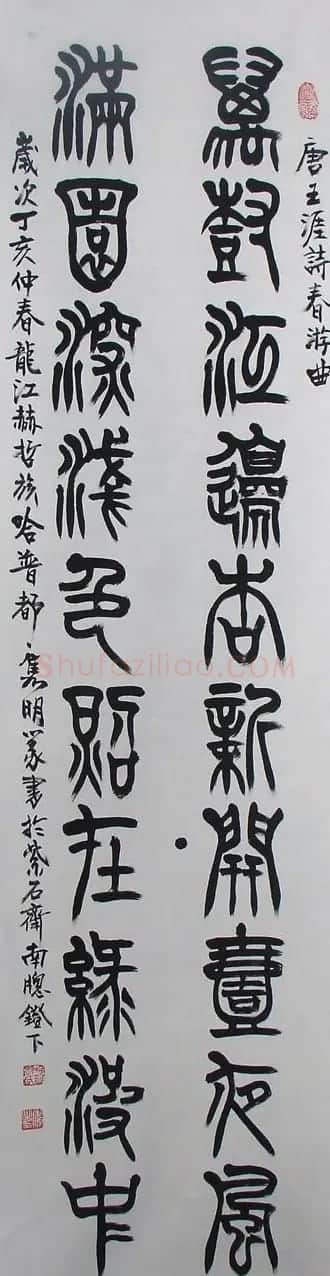 唐王涯詩春游曲
萬樹江邊杏新開壹夜風
滿園深淺色照在綠波中
歲次丁亥仲春龍江赫哲族哈普都·雋明篆書於紫石齋南牕鐙下
Shufaziliao.COM